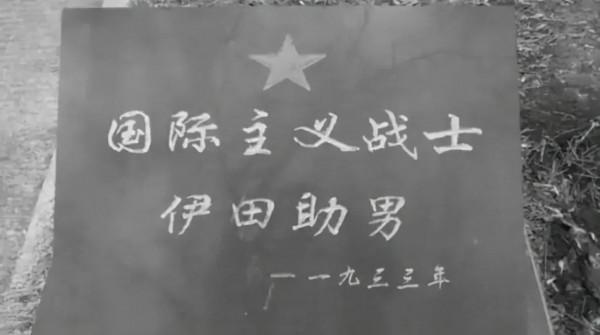 国际主义战士
伊田助男
一一九三三年